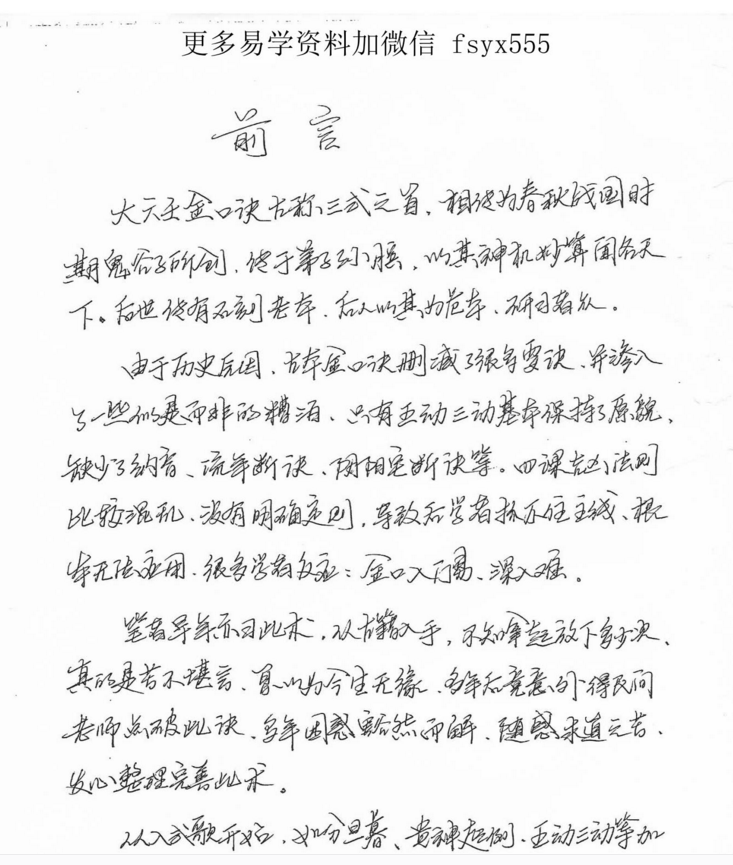 更多易学资料加微信 fsyx555
前言
大六壬金口诀古称三式之首，相传为春秋战国时
期鬼谷子所创，传于弟子孙膑，以其神机妙算闻名天
下。后世传有石刻老本，后人以其为范本，研习者众。
由于历史原因，古本金口诀删减了很多要诀，并渗入
了一些似是而非的糟泊、只有五动三动基本保持了原貌、
缺少了纳音、流年断诀、阴阳宅断诀等。四课克应法则
比较混乱、没有明确定则，导致后学者抓不住主线、根
本无法应用、很多学者反应：金口入门易、深入难。
笔者早年亦习此术，从古籍入手，不知拿起放下多少次、
真的是苦不堪言、自以为今生无缘、多年后竟意外得民间
老师点破此诀、多年困惑豁然而解、随感求道之苦、
发心整理完善此术。
从入式歌开始，如分旦暮、贵神起例、五动三动等加